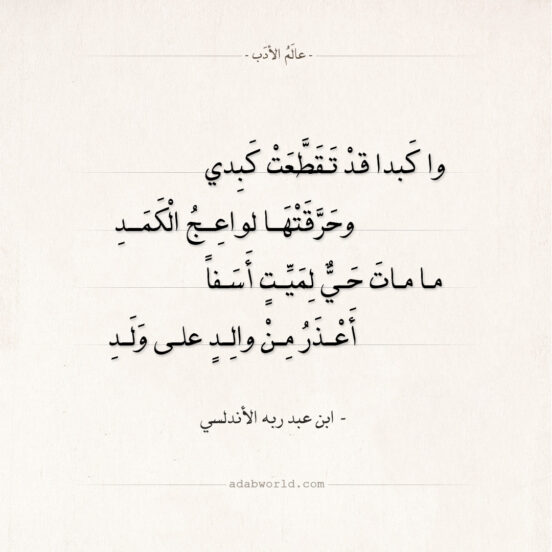 - عالَمُ الأدَب -
وا كَبدا قدْ تَقَطَّعَتْ كَبِدي
وحَرَّقَتْهَا لواعِجُ الْكَمَدِ
ما ماتَ حَيٌّ لِمَيِّتٍ أَسَفاً
أَعْذَرُ مِنْ والِدٍ على وَلَدِ
- ابن عبد ربه الأندلسي
adabworld.com